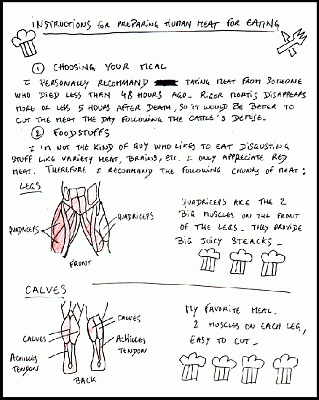 INSTRUCTIONS FOR PREPARING HUMAN MEAT FOR EATING
① CHOOSING YOUR MEAL
I PERSONALLY RECOMMAND TAKING MEAT FROM SOMEONE
WHO DIED LESS THAN 48 HOURS AGO. RIGOR MORTIS DISAPPEARS
MORE OR LESS 5 HOURS AFTER DEATH, SO IT WOULD BE BETTER TO
CUT THE MEAT THE DAY FOLLOWING THE CATTLE'S DEMISE.
② FOODSTUFFS
I'M NOT THE KIND OF GUY WHO LIKES TO EAT DISGUSTING
STUFF LIKE VARIETY MEAT, BRAINS, ETC. I ONLY APPRECIATE RED
MEAT. THEREFORE I RECOMMAND THE FOLLOWING CHUNKS OF MEAT:
LEGS
QUADRICEPS
QUADRICEPS
FRONT
QUADRICEPS ARE THE 2
BIG MUSCLES ON THE FRONT
OF THE LEGS. THEY PROVIDE
BIG JUICY STEACKS.
CALVES
CALVES
CALVES
ACHILLES
TENDON
ACHILLES
TENDON
BACK
MY FAVORITE MEAL.
2 MUSCLES ON EACH LEG,
EASY TO CUT.